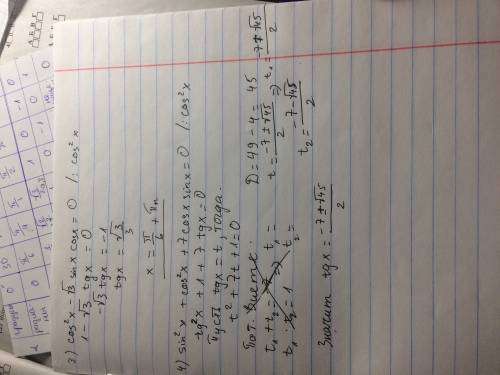 3) cos²x - √3 sin x cosx = 0 | : cos²x
1 - √3 tgx = 0
-√3 tgx = -1
tgx = √3/3
x = π/6 + πn
4) sin²x + cos²x + 7cosx sinx = 0 | : cos²x
tg²x + 1 + 7 tgx = 0
Пусть tgx = t, тогда
t² + 7t + 1 = 0
По т. Виета:
t₁ + t₂ = -7
t₁ · t₂ = 1
t₁ =
t₂ =
D = 49 - 4 = 45
t = (-7 ± √45)/2 ⇒ t₁ = (-7 + √45)/2
t₂ = (-7 - √45)/2
Значит tgx = (-7 ± √45)/2